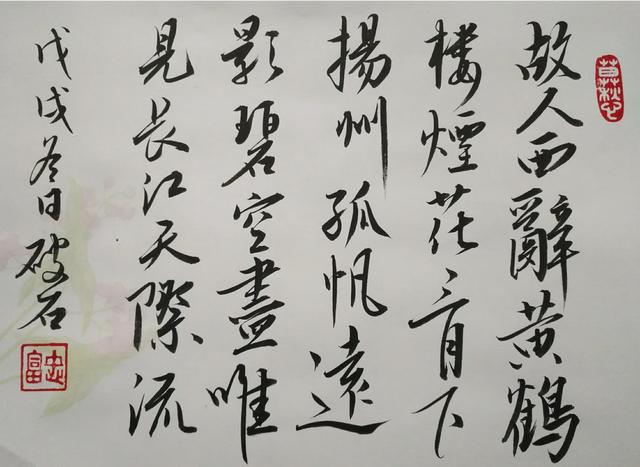 故人西辭黄鶴
楼煙花三月下
揚州孤帆遠
影碧空盡唯
見長江天際流
戊戌冬日破石
忠富